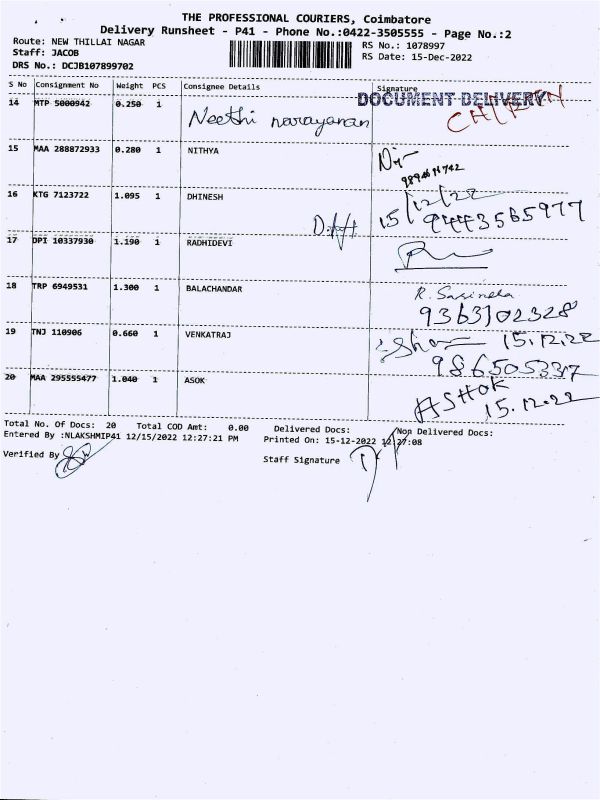 THE PROFESSIONAL COURIERS, Coimbatore
Delivery Runsheet - P41 - Phone No.:0422-3505555 - Page No.:2
Route: NEW THILLAI NAGAR
RS No.: 1078997
Staff: JACOB
RS Date: 15-Dec-2022
DRS No.: DCJB107899702
S No Consignment No Weight PCS Consignee Details Signature
DOCUMENT DELIVERY
14 MTP 5000942 0.250 1 Neethi narayanan
15 MAA 288872933 0.280 1 NITHYA
16 KTG 7123722 1.095 1 DHINESH 15/12/22
9443565977
17 DPI 10337930 1.190 1 RADHIDEVI
18 TRP 6949531 1.300 1 BALACHANDAR
9363102328
19 TNJ 110906 0.660 1 VENKATRAJ 15.12.22
20 MAA 295555477 1.040 1 ASOK ASHOK
15.12.22
Total No. Of Docs: 20 Total COD Amt: 0.00 Delivered Docs: Non Delivered Docs:
Entered By :NLAKSHMIP41 12/15/2022 12:27:21 PM Printed On: 15-12-2022 12:27:08
Verified By
Staff Signature